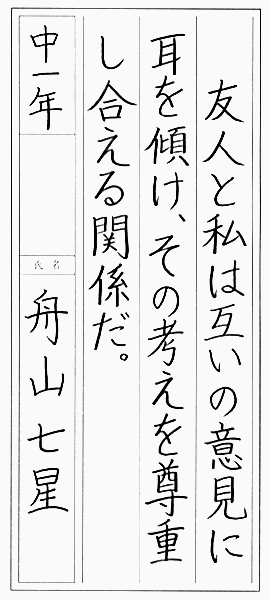 友人と私は互いの意見に
耳を傾け、その考えを尊重
し合える関係だ。
中一年
氏名
舟山七星